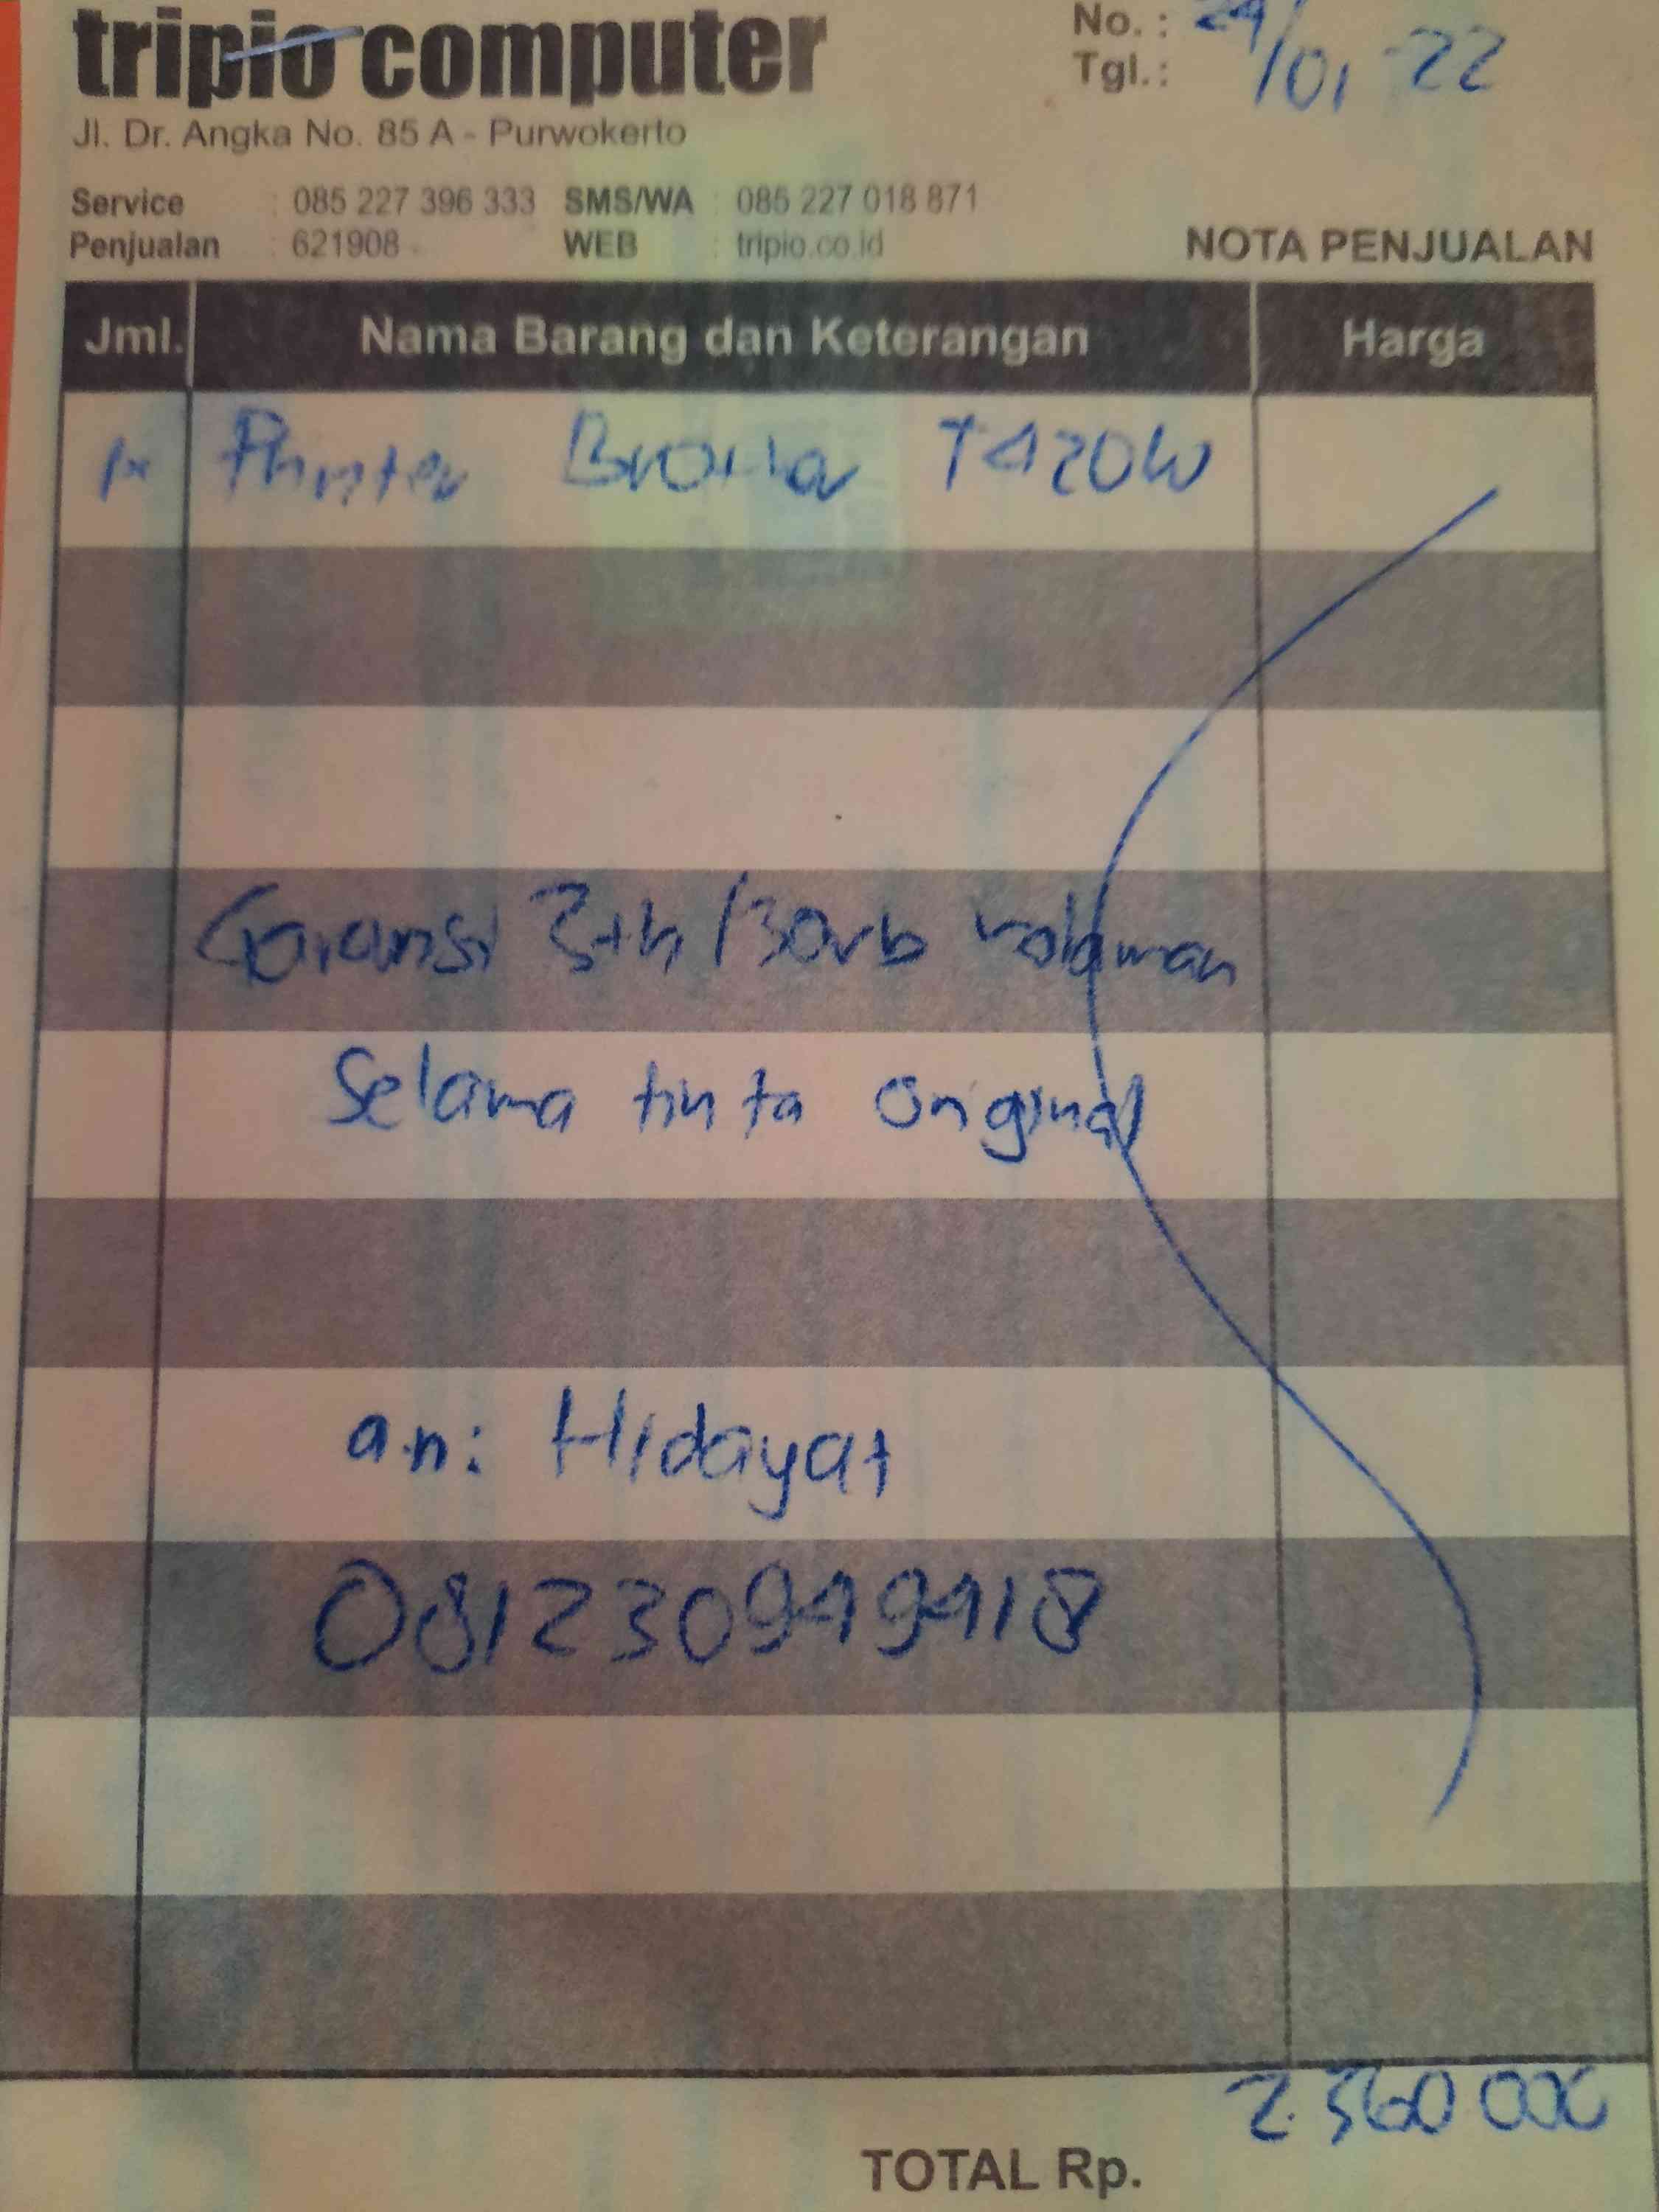 tripio computer
No. :
Tgl. : 24/01-22
Jl. Dr. Angka No. 85 A - Purwokerto
Service : 085 227 396 333 SMS/WA : 085 227 018 871
Penjualan : 621908 WEB : tripio.co.id
NOTA PENJUALAN
Jml. Nama Barang dan Keterangan Harga
1x Printer Brother T420W
Garansi 3th/30rb halaman
Selama tinta original
a.n: Hidayat
081230949918
TOTAL Rp. 2.360 000